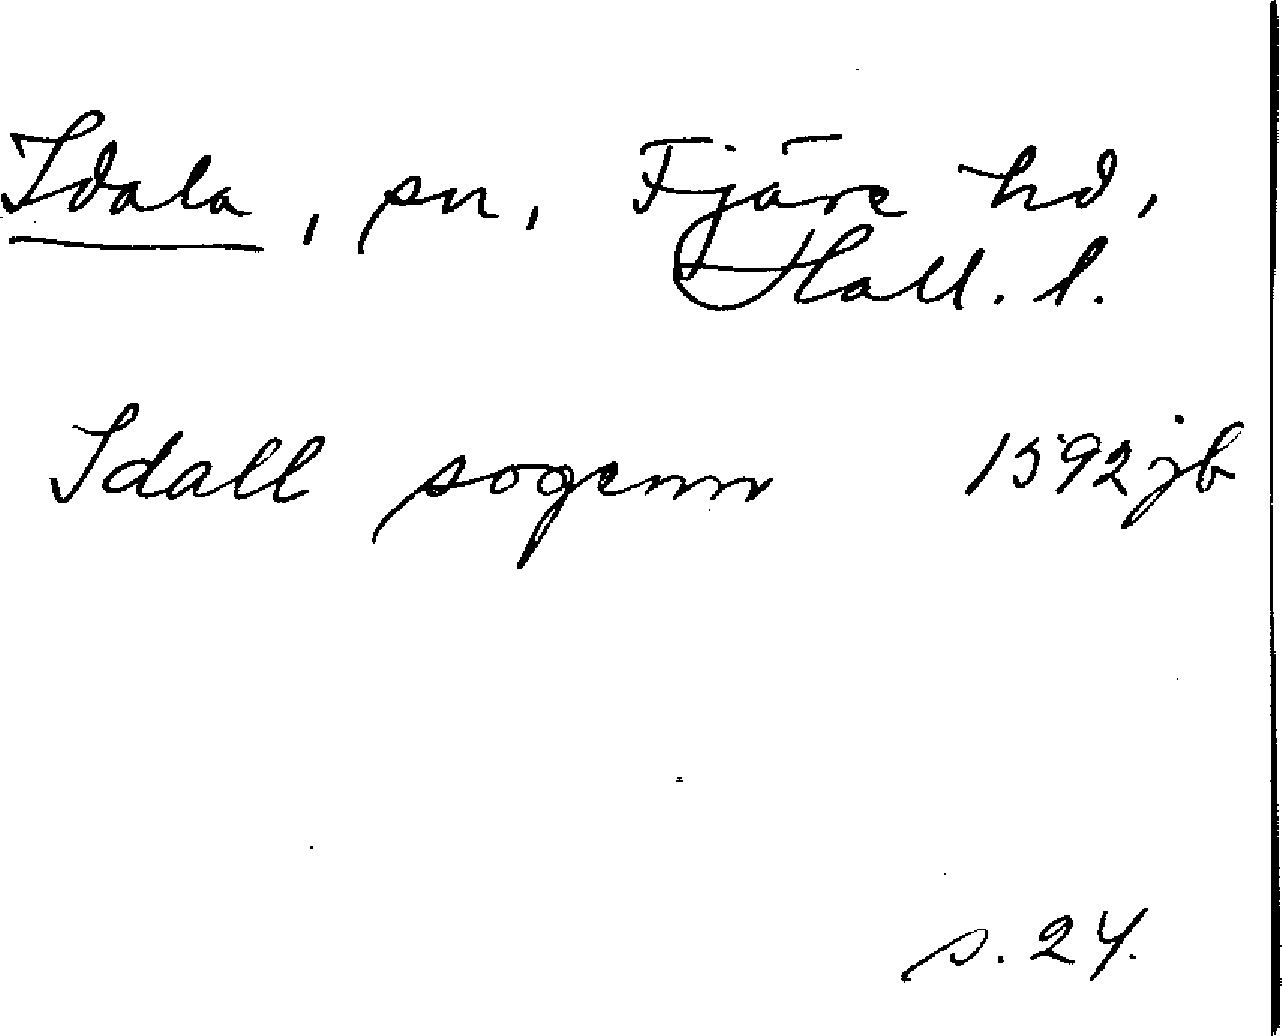 Idala, sn, Fjäre hd,
Hall. l.
Idall sogenn 1592 jb
s. 24.